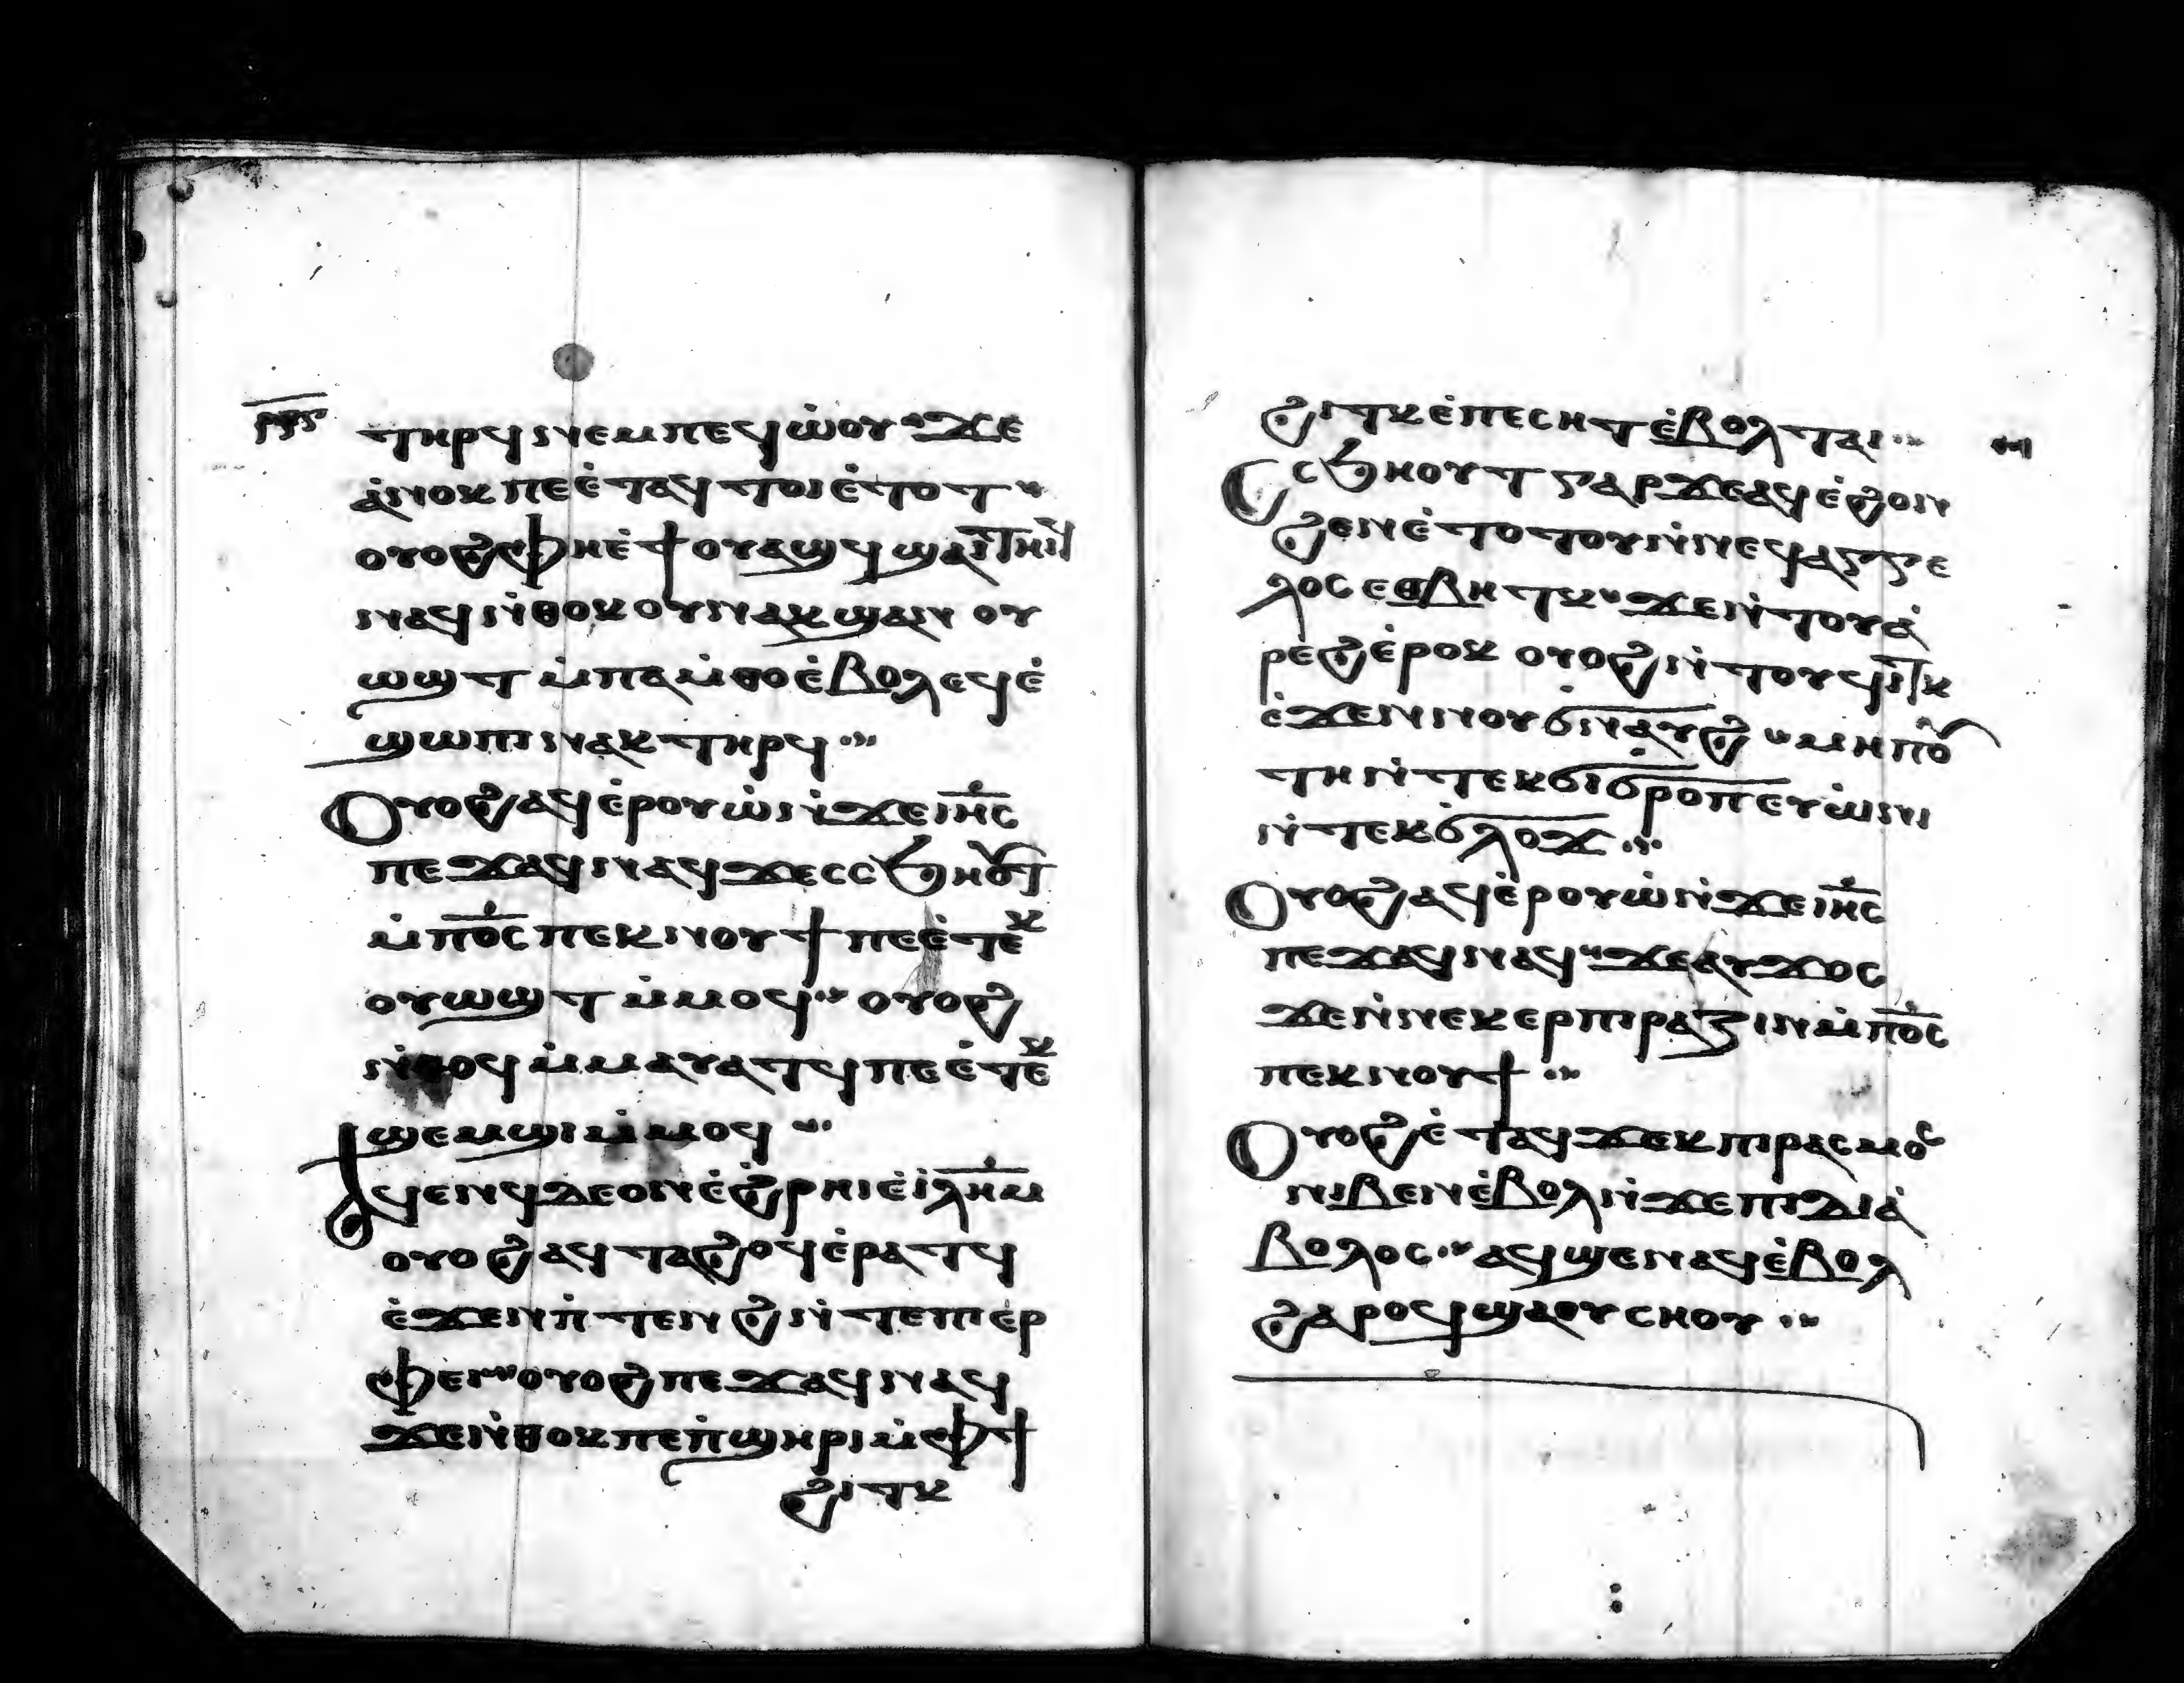 ⲧⲏⲣϥ ⲛⲉⲙ ⲡⲉϥⲱ̇ⲟⲩ ϫⲉ
ⲁ̇ⲛⲟⲕ ⲡⲉ ⲉ̇ⲧⲁⲩ ⲧⲟⲓ ⲉ̇ⲧⲟⲧ
ⲟⲩⲟϩ ⲫⲏ ⲉ̇ϯⲟⲩⲁϣϥ ϣⲁⲓⲧⲏⲓϥ
ⲛⲁϥ ⲛ̇ⲑⲟⲕ ⲟⲩⲛ ⲁⲕϣⲁⲛ ⲟⲩ
ⲱϣⲧ ⲙ̇ⲡⲁⲙ̇ⲑⲟ ⲉ̇ⲃⲟⲗ ⲉϥⲉ̇
ϣⲱⲡⲓ ⲛⲁⲕ ⲧⲏⲣϥ
ⲟⲩⲟϩ ⲁϥⲉ̇ⲣⲟⲩⲱ̇ ⲛ̇ϫⲉ ⲓⲏ̅ⲥ
ⲡⲉϫⲁϥ ⲛⲁϥ ϫⲉ ⲥⲥϧⲏⲟⲩⲧ
ⲙ̇ⲡⲟ̅ⲥ ⲡⲉⲕⲛⲟⲩϯ ⲡⲉ ⲉ̇ⲧⲉⲕ
ⲟⲩⲱϣⲧ ⲙ̇ⲙⲟϥ ⲟⲩⲟϩ
ⲛ̇ⲑⲟϥ ⲙ̇ⲙⲁⲩⲁⲧϥ ⲡⲉ ⲉ̇ⲧⲉⲕ
ϣⲉⲙϣⲓ ⲙ̇ⲙⲟϥ
ⲁϥⲉⲛϥ ⲇⲉ ⲟⲛ ⲉ̇ϩ̇ⲣⲏⲓ ⲉ̇ⲓ̅ⲗ̅ⲏ̅ⲙ
ⲟⲩⲟϩ ⲁϥⲧⲁϩⲟϥ ⲉ̇ⲣⲁⲧϥ
ⲉ̇ϫⲉⲛ ⲡ̇ⲧⲉⲛϩ ⲛ̇ⲧⲉ ⲡⲓⲉⲣ
ⲫⲉⲓ ⲟⲩⲟϩ ⲡⲉϫⲁϥ ⲛⲁϥ
ϫⲉ ⲛ̇ⲑⲟⲕ ⲡⲉ ⲡ̇ϣⲏⲣⲓ ⲙ̇ⲫϯ
ϩⲓⲧⲕ
ϩⲓⲧⲕ ⲉ̇ⲡⲉⲥⲏⲧ ⲉ̇ⲃⲟⲗ ⲧⲁⲓ
ⲥⲥϧⲏⲟⲩⲧ ⲅⲁⲣ ϫⲉ ⲁϥⲉ̇ϩⲟⲛ
ϩⲉⲛ ⲉ̇ⲧⲟⲧⲟⲩ ⲛ̇ⲛⲉϥⲁⲅⲅⲉ
ⲗⲟⲥ ⲉⲑⲃⲏⲧⲕ ϫⲉ ⲛ̇ⲧⲟⲩⲁ̇
ⲣⲉϩ ⲉ̇ⲣⲟⲕ ⲟⲩⲟϩ ⲛ̇ⲧⲟⲩϥⲓⲧⲕ
ⲉ̇ϫⲉⲛ ⲛⲟⲩϭⲛⲁⲩϩ ⲙⲏⲡⲟ
ⲧⲏ ⲛ̇ⲧⲉⲕϭⲓϭⲣⲟⲡ ⲉⲩⲱ̇ⲛⲓ
ⲛ̇ⲧⲉⲕϭⲁⲗⲟϫ
ⲟⲩⲟϩ ⲁϥⲉ̇ⲣⲟⲩⲱ̇ ⲛ̇ϫⲉ ⲓⲏ̅ⲥ
ⲡⲉϫⲁϥ ⲛⲁϥ ϫⲉ ⲁⲩϫⲟⲥ
ϫⲉ ⲛ̇ⲛⲉⲕⲉⲣⲡⲓⲣⲁⲍⲓⲛ ⲙ̇ⲡⲟ̅ⲥ
ⲡⲉⲕⲛⲟⲩϯ
ⲟⲩⲟϩ ⲉ̇ⲧⲁϥϫⲉⲕ ⲡⲓⲣⲁⲥⲙⲟⲥ
ⲛⲓⲃⲉⲛ ⲉ̇ⲃⲟⲗ ⲛ̇ϫⲉ ⲡⲓⲇⲓⲁ̇
ⲃⲟⲗⲟⲥ ⲁϥϣⲉⲛⲁϥ ⲉ̇ⲃⲟⲗ
ϩⲁⲣⲟϥ ϣⲁ ⲟⲩⲥⲏⲟⲩ